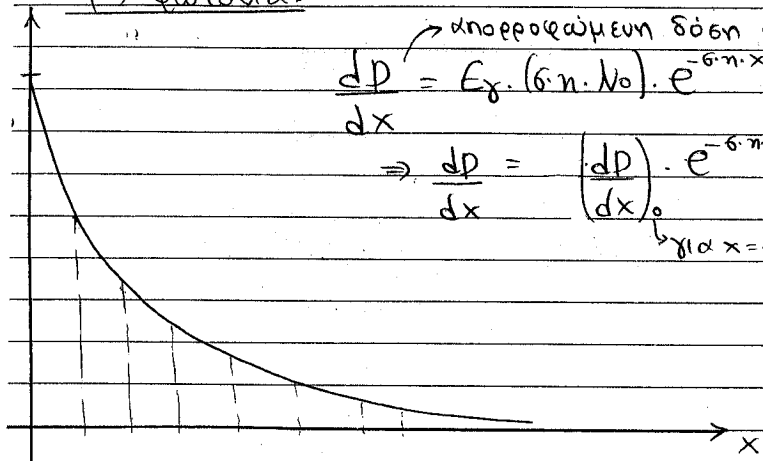 φωτόνια:
απορροφώμενη δόση
dD/dx = Eγ.(σ.n.No).e^-σ.n.x
⇒ dD/dx = (dD/dx)₀ . e^-σ.n
για x=
x